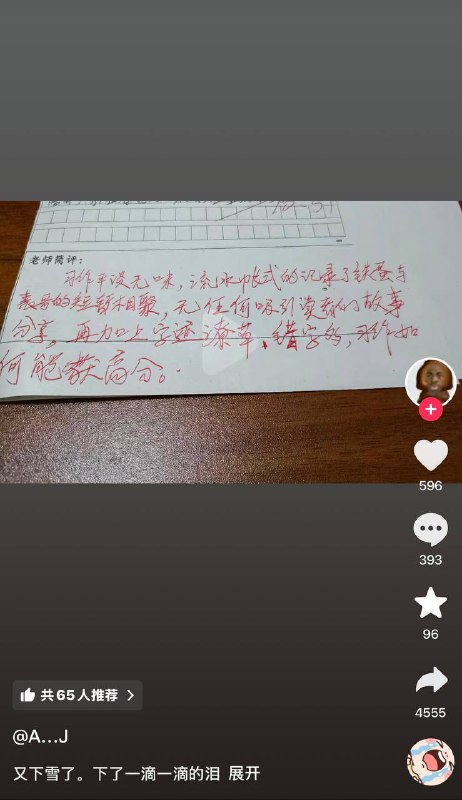 老师简评：
习作平淡无味，流水帐式的记录了铁蛋与
表哥的短暂相聚，无任何吸引读者的故事
分享，再加上字迹潦草、错字多，习作如
何能获高分。
596
393
96
4555
共 65 人推荐
@A...J
又下雪了。下了一滴一滴的泪 展开